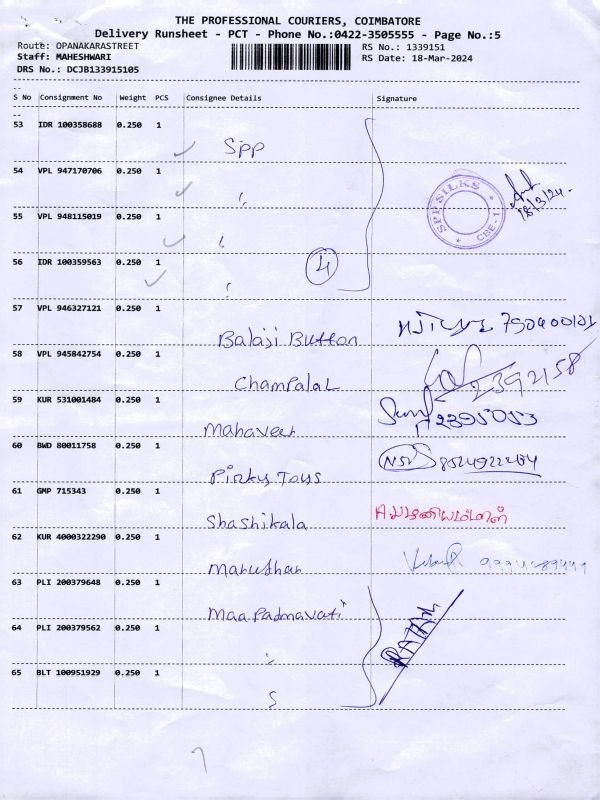 THE PROFESSIONAL COURIERS, COIMBATORE
Delivery Runsheet - PCT - Phone No.:0422-3505555 - Page No.:5
Route: OPANAKARASTREET RS No.: 1339151
Staff: MAHESHWARI RS Date: 18-Mar-2024
DRS No.: DCJB133915105
S No Consignment No Weight PCS Consignee Details Signature
53 IDR 100358688 0.250 1
SPP
54 VPL 947170706 0.250 1
SPP SILKS
CBE-1
18/3/24
55 VPL 948115019 0.250 1
56 IDR 100359563 0.250 1
4
57 VPL 946327121 0.250 1
Balaji Button
58 VPL 945842754 0.250 1
Champalal 2392158
59 KUR 531001484 0.250 1
Mahaveer 2395053
60 BWD 80011758 0.250 1
Pinky Toys
61 GMP 715343 0.250 1
Shashikala
62 KUR 4000322290 0.250 1
Marudhar
63 PLI 200379648 0.250 1
Maa Padmavati
RATAN
64 PLI 200379562 0.250 1
65 BLT 100951929 0.250 1